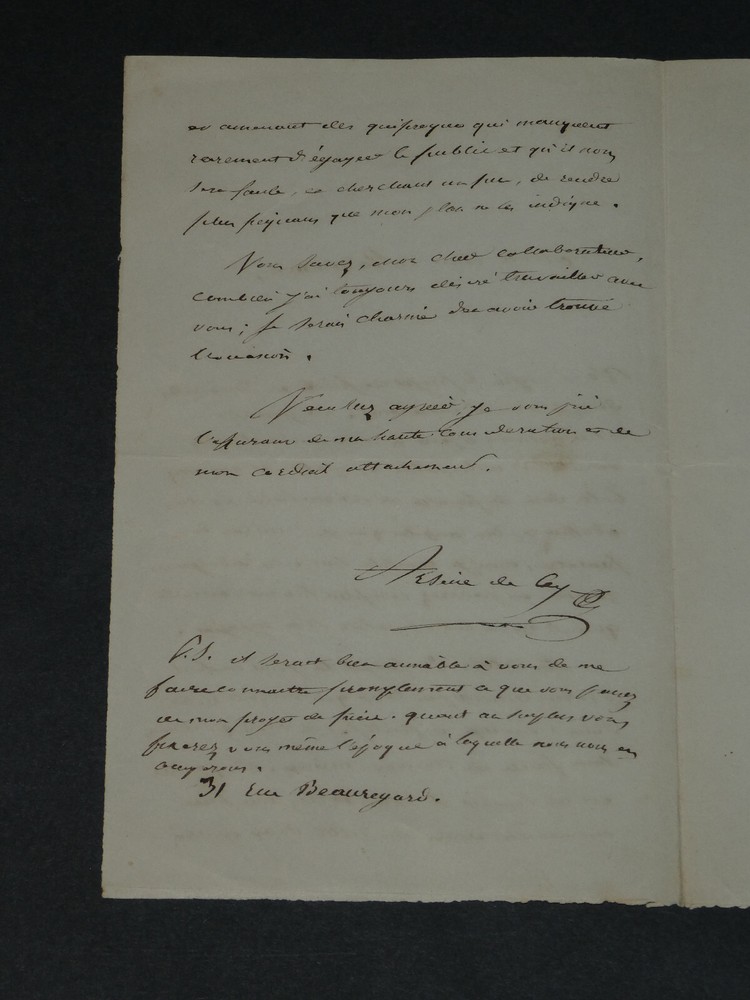 et amenant des quiproquo qui manquent
rarement d'égayer le public et qu'il nous
sera facile, en cherchant un peu, de rendre
plus piquans que mon plan ne les indique.
Vous savez, mon cher collaborateur,
combien j'ai toujours désiré travailler avec
vous; je serais charmé d'en avoir trouvé
l'occasion.
Veuillez agréer, je vous prie
l'assurance de ma haute considération et de
mon cordial attachement.
Arsène de Cey
P.S. il serait bien aimable à vous de me
faire connaitre promptement ce que vous pensez
de mon projet de pièce. quant au surplus vous
fixerez vous même l'époque à laquelle nous nous en
occuperons.
31 rue Beauregard.